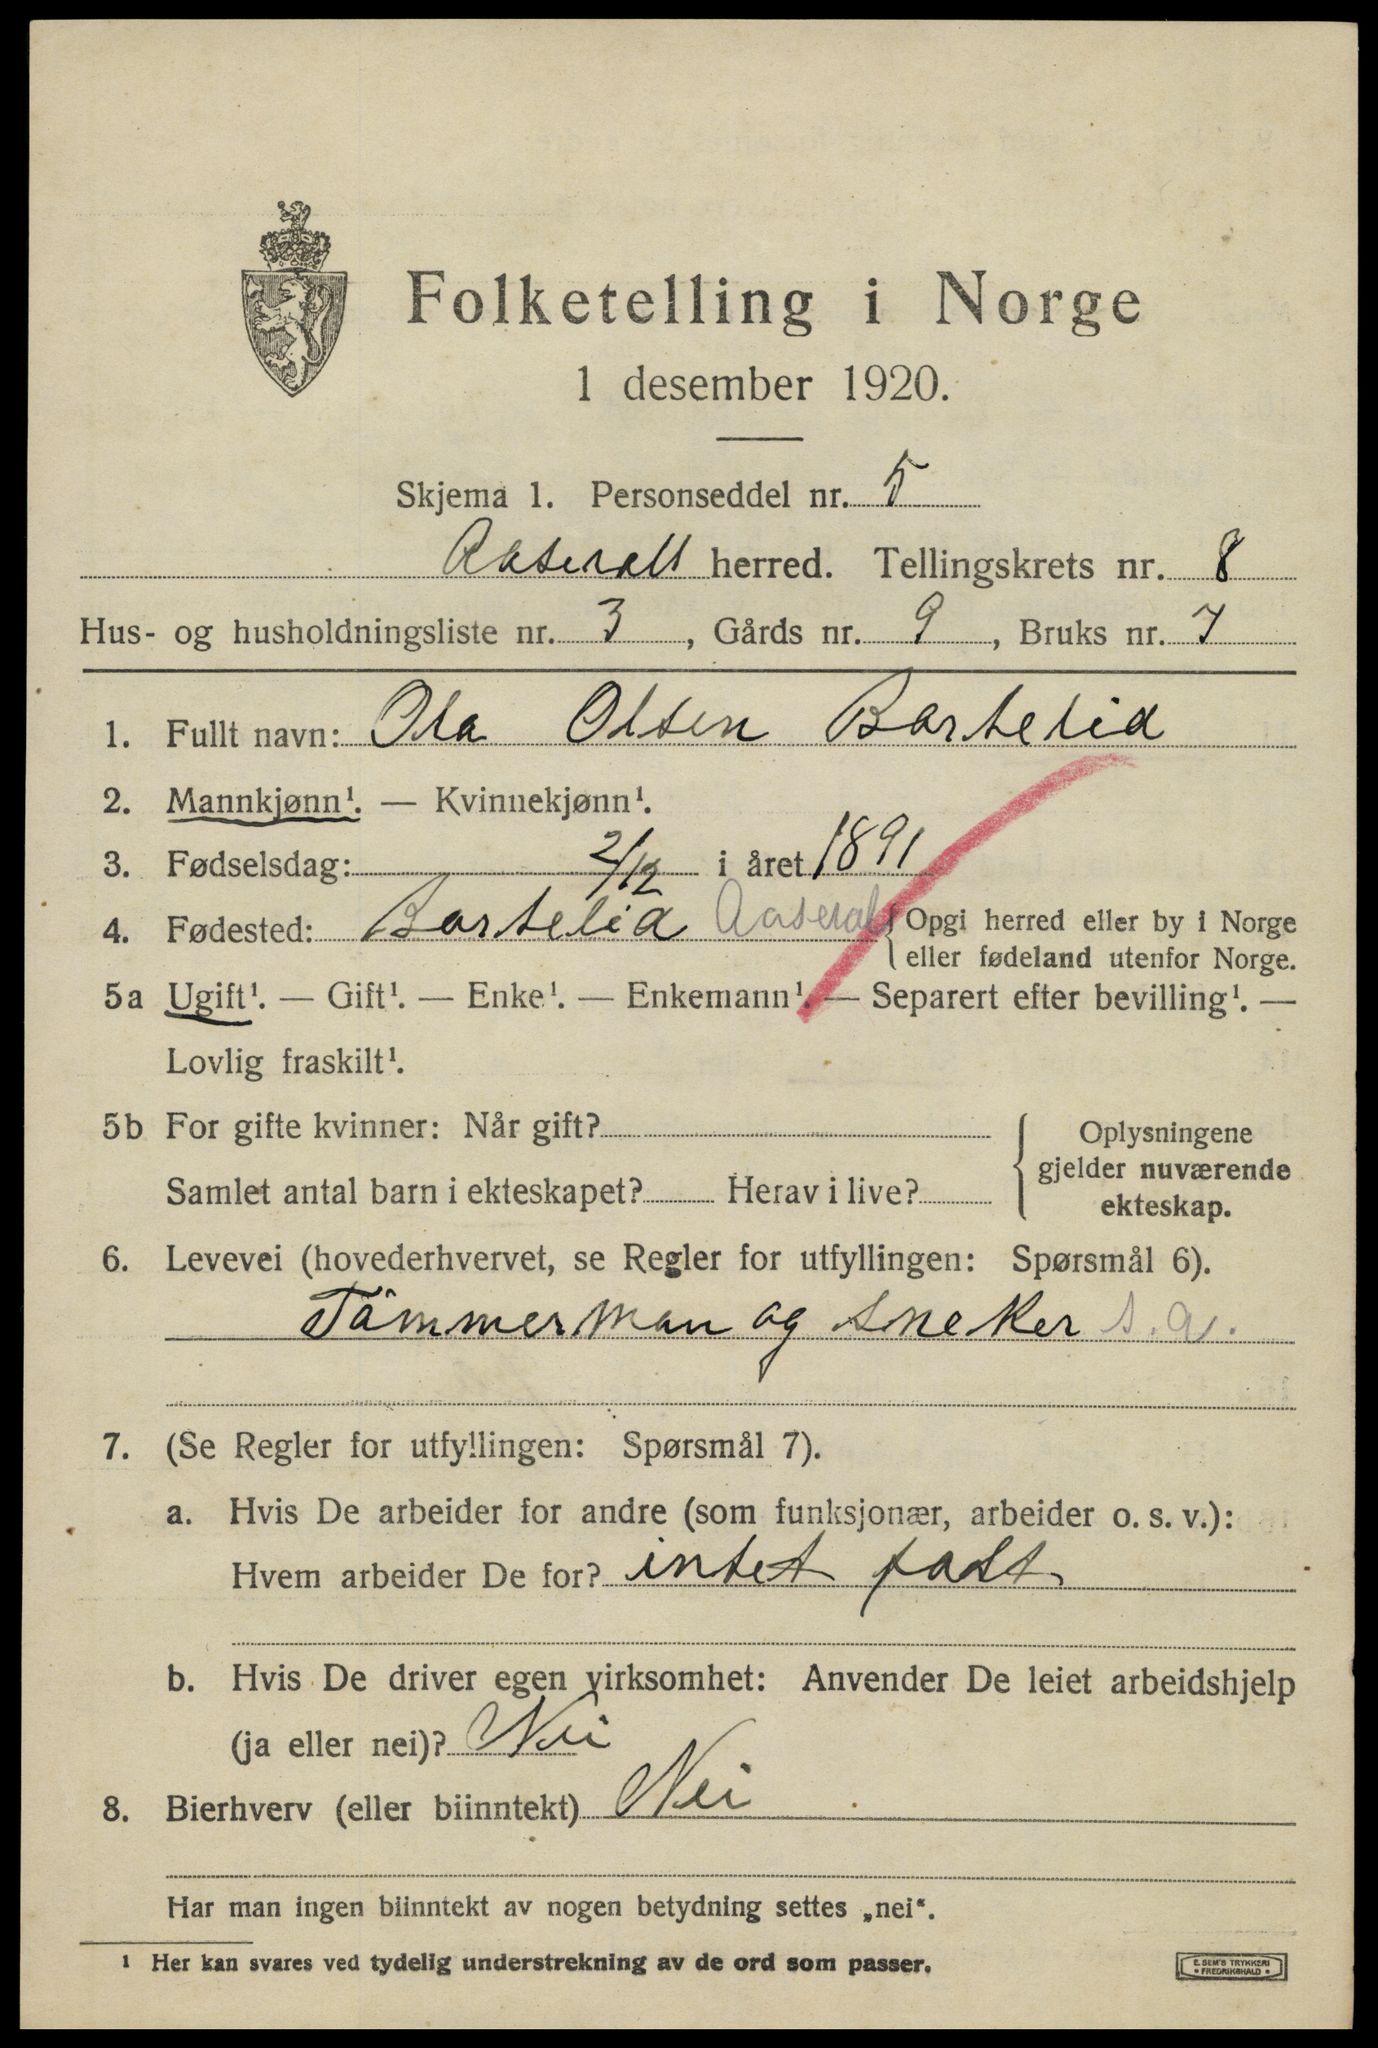 Folketelling i Norge
1 desember 1920.
Skjema 1. Personseddel nr. 5
Aaserall herred. Tellingskrets nr. 8
Hus- og husholdningsliste nr. 3, Gårds nr. 9, Bruks nr. 7
1. Fullt navn: Ola Olsen Bortelid
2. Mannkjønn¹. — Kvinnekjønn¹.
3. Fødselsdag: 2/12 i året 1891
4. Fødested: Bortelid Aaseral { Opgi herred eller by i Norge
eller fødeland utenfor Norge.
5a Ugift¹. — Gift¹. — Enke¹. — Enkemann¹. — Separert efter bevilling¹. —
Lovlig fraskilt¹.
5b For gifte kvinner: Når gift?
Samlet antal barn i ekteskapet? Herav i live?
{ Oplysningene
gjelder nuværende
ekteskap.
6. Levevei (hovederhvervet, se Regler for utfyllingen: Spørsmål 6).
Tömmerman og sneker s.a.
7. (Se Regler for utfyllingen: Spørsmål 7).
a. Hvis De arbeider for andre (som funksjonær, arbeider o. s. v.):
Hvem arbeider De for? intet fast
b. Hvis De driver egen virksomhet: Anvender De leiet arbeidshjelp
(ja eller nei)? Nei
8. Bierhverv (eller biinntekt) Nei
Har man ingen biinntekt av nogen betydning settes „nei“.
¹ Her kan svares ved tydelig understrekning av de ord som passer.
E. SEM'S TRYKKERI
• FREDRIKSHALD •